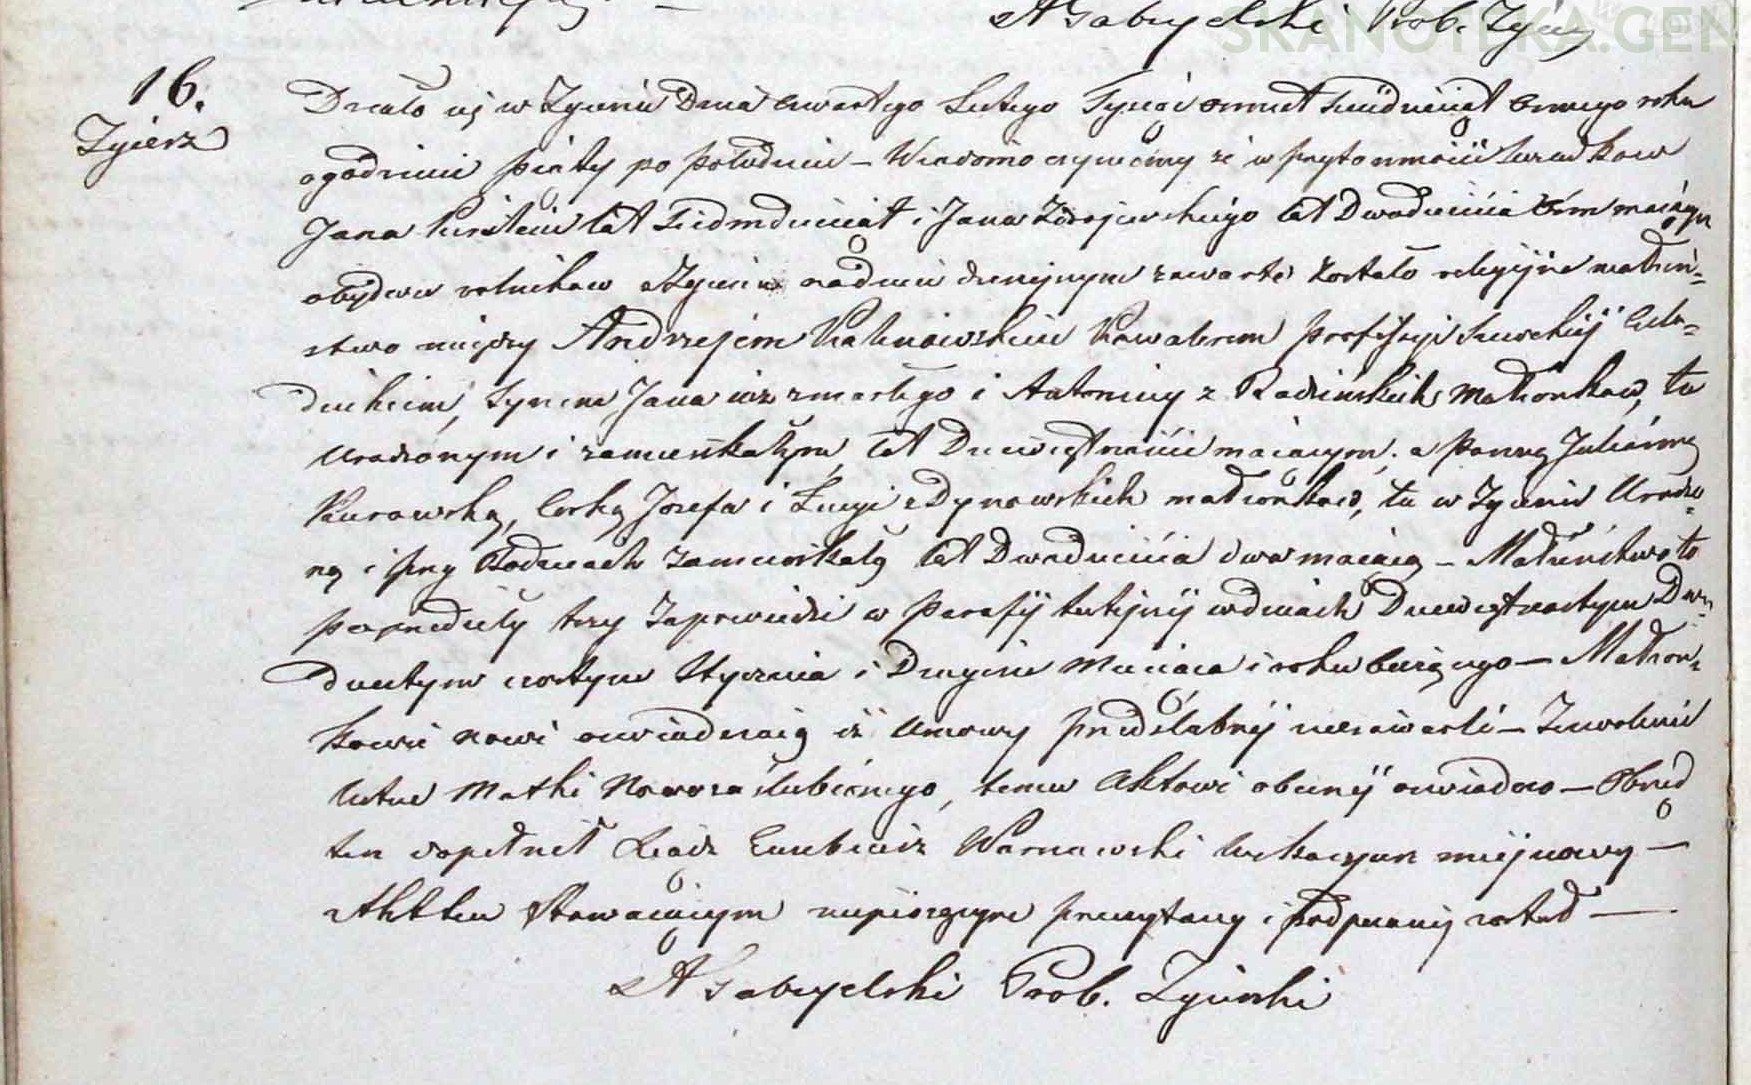 A Gabryelski Prob. Zgier
SKANOTEKA.GEN
16.
Zgierz
Działo się w Zgierzu Dnia czwartego Lutego Tysiąc osmset siedmdziesiąt osmego roku
o godzinie piąty po południu – Wiadomo czyniemy że w przytomności świadkow
Jana lat siedmdziesiąt i Jana Zdrojewskiego lat Dwadzieścia ośm maiących
obydwu rolnikow z Zgierza na dniu dzisiejszym zawarte zostało religijne małżeń=
stwo między Andrzejem Kalinowskim Kawalerem professyi szewckiej Czela=
dnikiem, synem Jana już zmarłego i Antoniny z Radzinskich małżonkow, tu
urodzonym i zamieszkałym, lat Dziewiętnaście maiącym, a Panną Julianną
Kurowską, Corką Jozefa i Łucyi z Dynowskich małżonkow, tu w Zgierzu Urodzo=
ną i przy Rodzicach zamieszkałą lat Dwadzieścia dwa maiącą – Małżeństwo to
poprzedziły trzy Zapowiedzi w Parafij tutejszij w dniach Dziewiętnastym Dwu=
dziestym szostym Stycznia i Drugim Miesiąca i roku bieżącego – Małżon=
kowie nowi oświadczaią iż umowy przedślubnij niezawarli – Zezwolenie
ustne Matki Nowozaślubionego, temu Aktowi obecnij oświadczo – Obrzęd
ten dopełnił Xiądz Euzebiusz Warnawski Wikaryusz miejscowy –
Akt ten Stawaiącym niepiszącym przeczytany i podpisany został –
A Gabryelski Prob. Zgierski